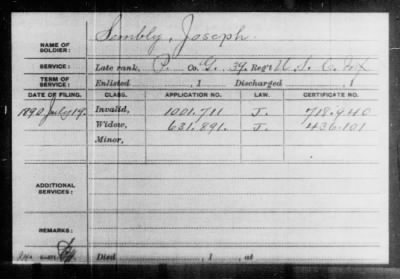 NAME OF SOLDIER: Sembly, Joseph.
SERVICE: Late rank, P. Co. G. 39. Reg't U.S.C. Inf
TERM OF SERVICE: Enlisted , 1 Discharged , 1
DATE OF FILING. CLASS. APPLICATION NO. LAW. CERTIFICATE NO.
1890 July 19. Invalid, 1001.711 J. 718.940
Widow, 631.891. J. 436.101
Minor,
ADDITIONAL SERVICES:
REMARKS:
Died , 1 , at